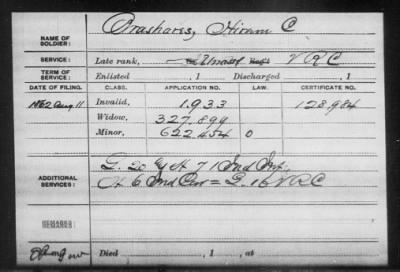 NAME OF SOLDIER: Brashares, Hiram C
SERVICE: Late rank, VRC
TERM OF SERVICE: Enlisted , 1 Discharged , 1
DATE OF FILING. CLASS. APPLICATION NO. LAW. CERTIFICATE NO.
1862 Aug. 11 Invalid, 1.933 128.984
Widow, 327.899
Minor, 622.454 0
ADDITIONAL SERVICES: G. 20 & H 71 Ind Inf.
H 6 Ind Cav = G. 16 VRC
REMARKS:
Died , 1 , at